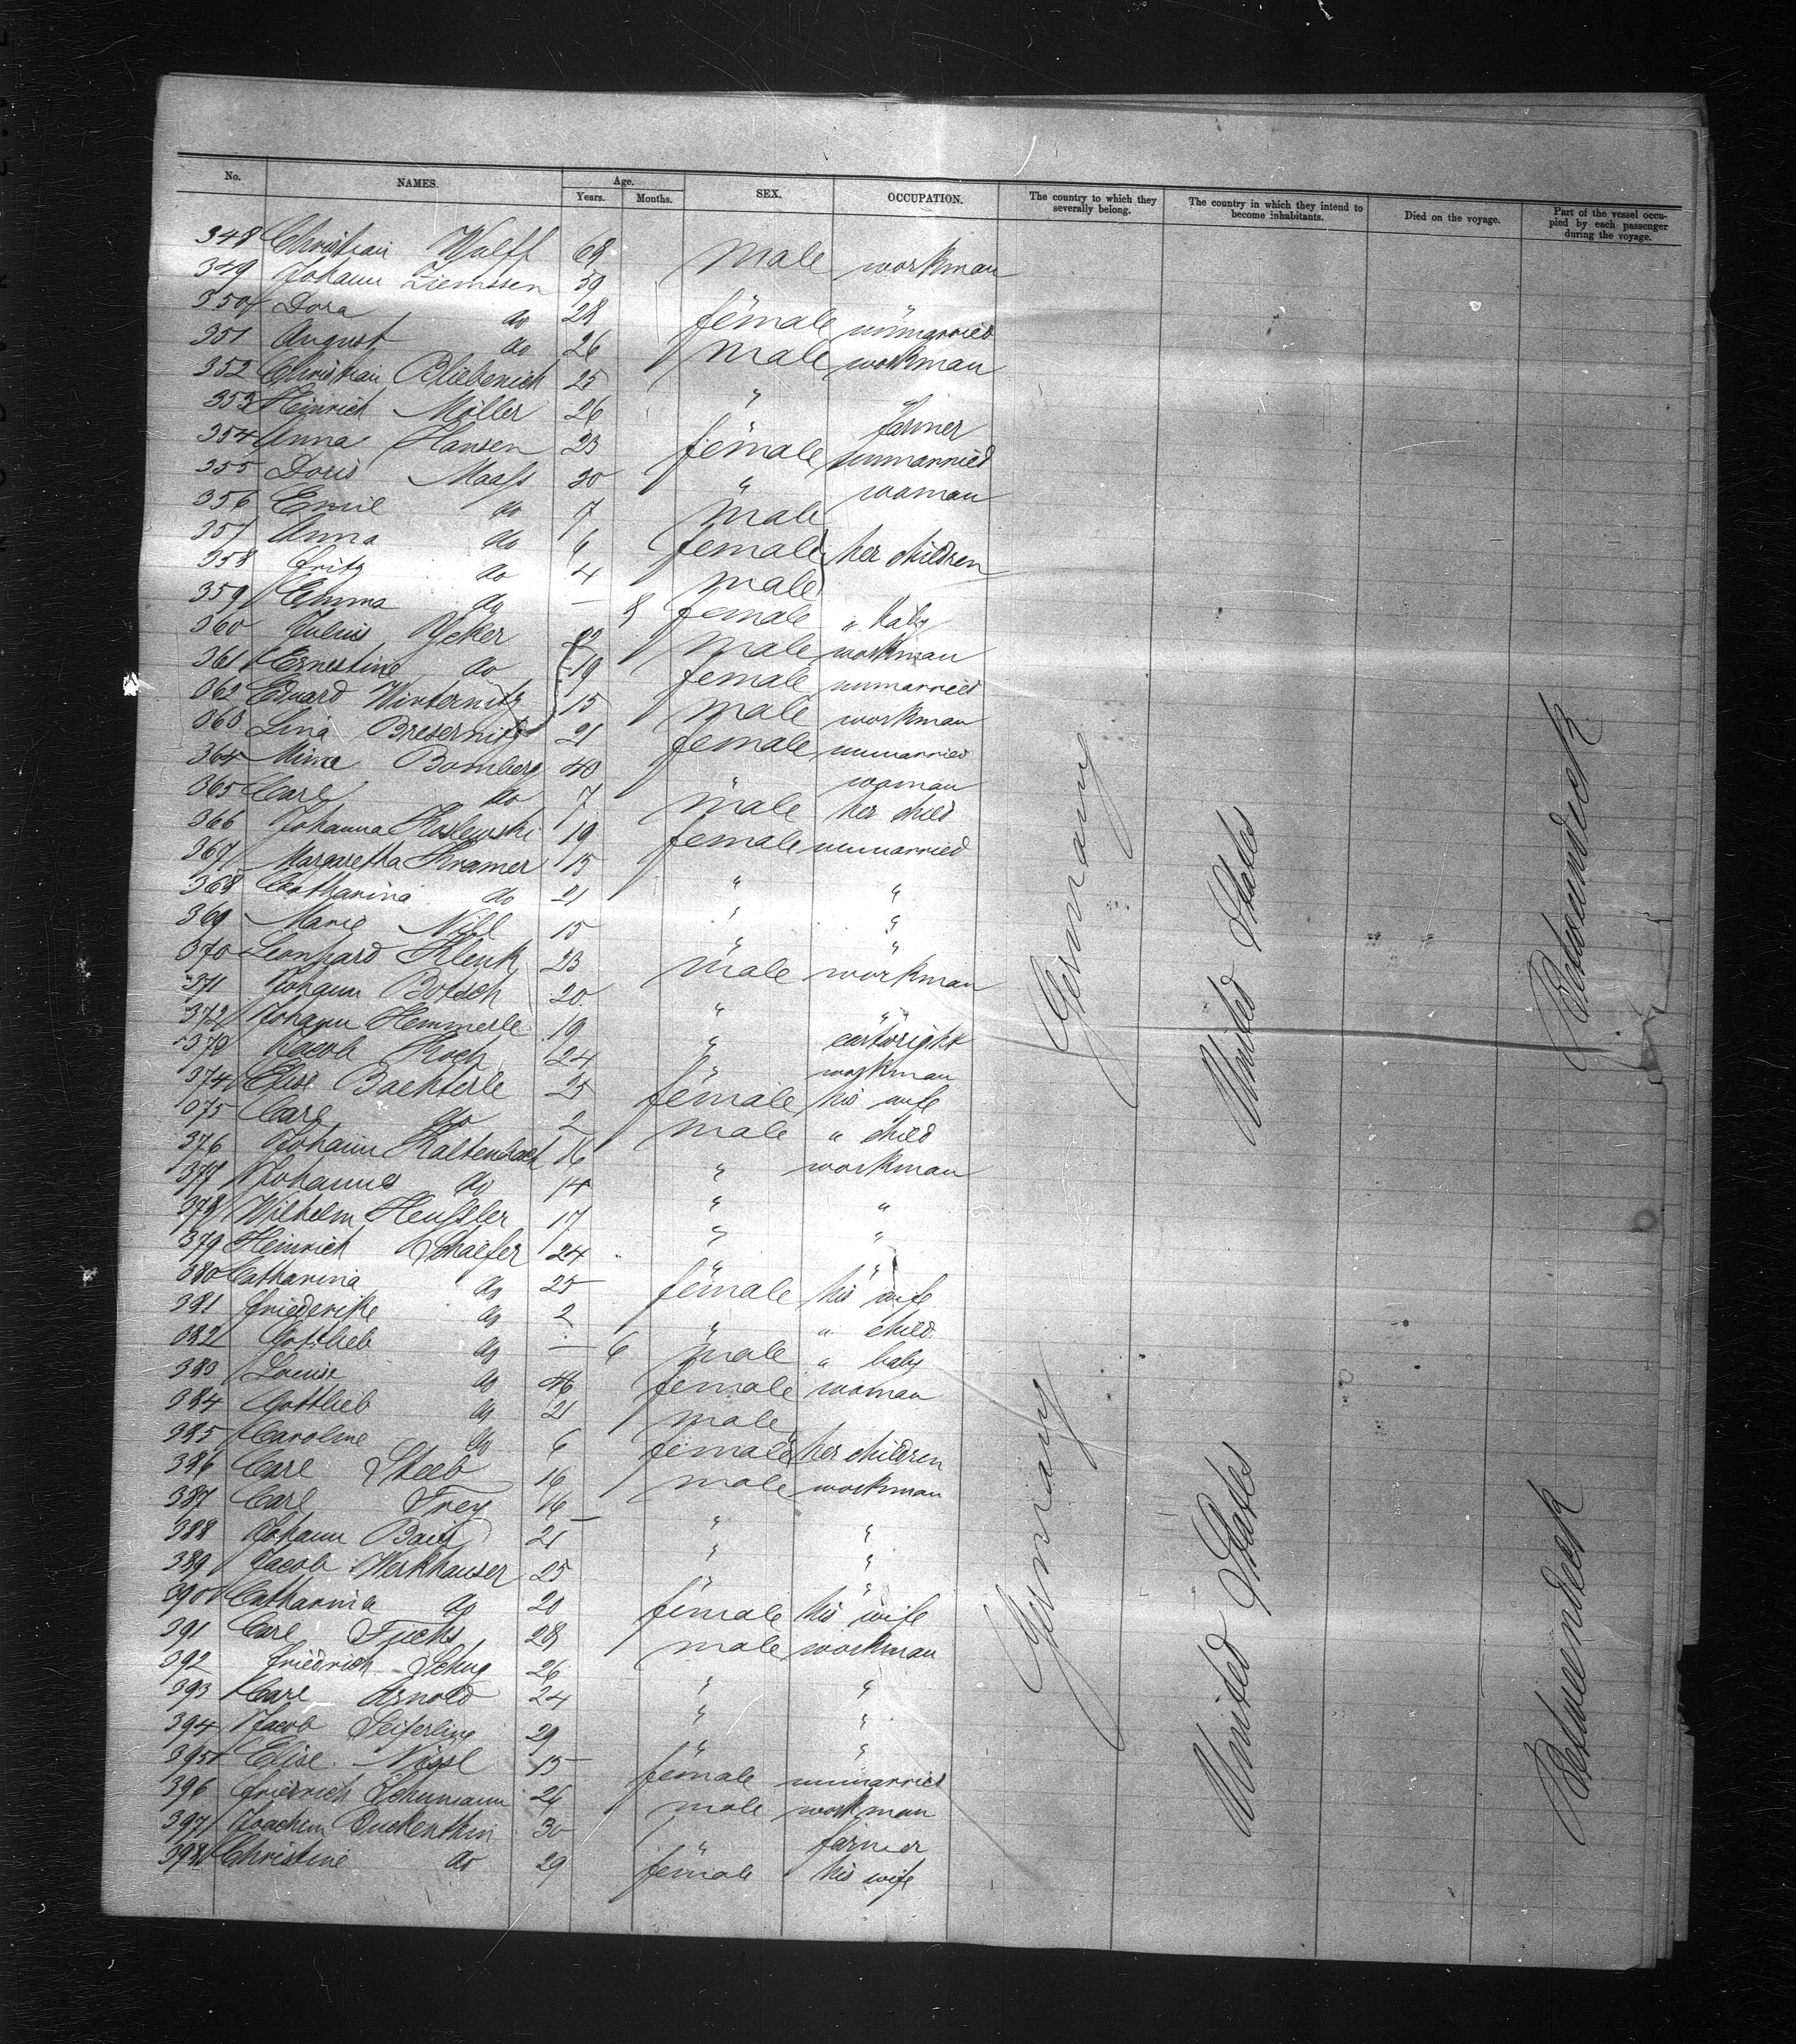 No. NAMES. Age. Years. Months. SEX. OCCUPATION. The country to which they severally belong. The country in which they intend to become inhabitants. Died on the voyage. Part of the vessel occupied by each passenger during the voyage.
348 Christian Wulff 68 male workman
349 Johann Ziemssen 59 "
350 Dora do 28 female unmarried
351 August do 26 male workman
352 Christian Bliebenich 25 " "
353 Heinrich Möller 26 " farmer
354 Anna Hansen 23 female unmarried
355 Doris Maass 30 " woman
356 Emil do 7 male
357 Anna do 6 female her children
358 Fritz do 4 male
359 Emma do — 8 female " baby
360 Julius 22 male workman
361 Ernestine do 19 female unmarried
362 Eduard Winternitz 15 male workman
363 Lina Bresernitz 21 female unmarried
364 Mime Bomberg 40 " woman
365 Carl do 7 male her child
366 Johanna Koslewski 19 female unmarried
367 Margaretha Kramer 15 " "
368 Catharina do 21 " "
369 Marie Nibl 15 " "
370 Leonhard Klenk 23 male workman
371 Johann Botsch 20 " "
372 Johann Hemmerle 19 " cartwright
373 Jacob Koch 24 " workman
374 Elise Baehterle 25 female his wife
375 Carl do 2 male " child
376 Johann Kaltenbach 16 " workman
377 Johannes do 14 " "
378 Wilhelm Heussler 17 " "
379 Heinrich Schaefer 24 " "
380 Catharina do 25 female his wife
381 Friederike do 2 " " child
382 Gottlieb do — 6 male " baby
383 Louise do 46 female woman
384 Gottlieb do 21 male
385 Caroline do 6 female her children
386 Carl Steeb 16 male workman
387 Carl Frey 16 " "
388 Johann 21 " "
389 Jacob Werkhauser 25 " "
390 Catharina do 20 female his wife
391 Carl Fuchs 28 male workman
392 Friedrich Schug 26 " "
393 Carl Arnold 24 " "
394 Jacob Seiferling 29 " "
395 Elise Nissl 15 female unmarried
396 Friedrich Schumann 24 male workman
397 Joachim Duckenthin 30 " farmer
398 Christine do 29 female his wife
Germany
United States
Betweendeck
Germany
United States
Betweendeck